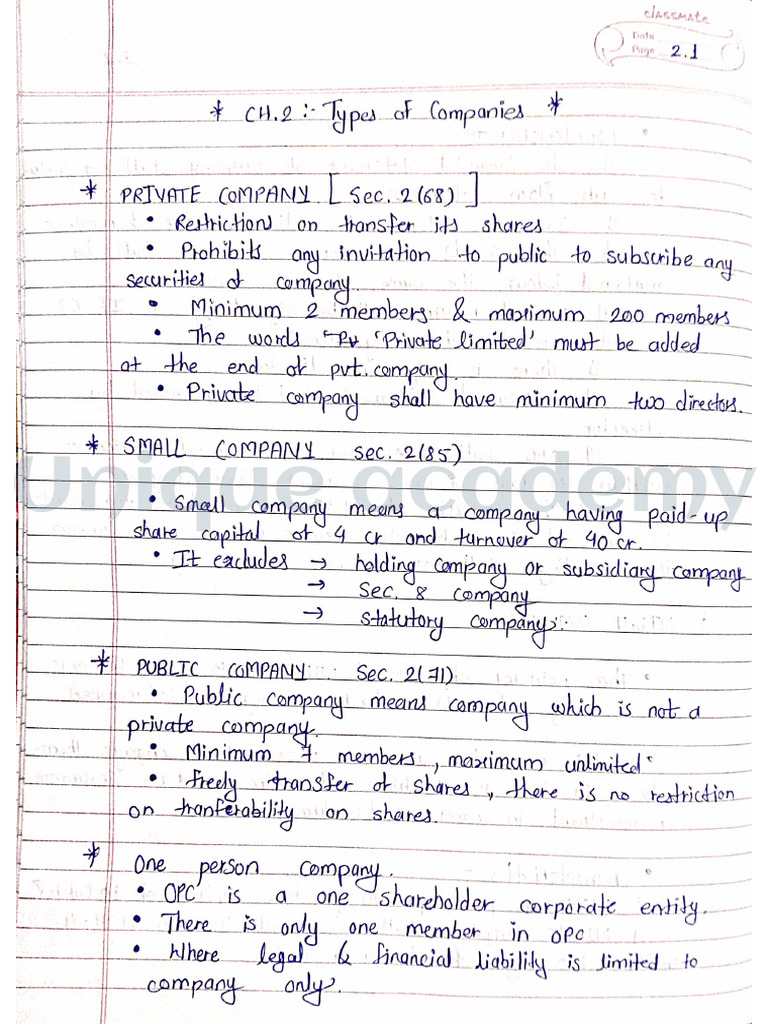 classmate
Date
Page 2.1
* CH.2 :- Types of Companies *
* PRIVATE COMPANY [ Sec. 2(68) ]
• Restriction on transfer its shares
• Prohibits any invitation to public to subscribe any
securities of company.
• Minimum 2 members & maximum 200 members
• The words 'Pv 'Private limited' must be added
at the end of pvt. company.
• Private company shall have minimum two directors.
* SMALL COMPANY sec. 2(85)
Unique academy
• Small company means a company having paid-up
share capital of 4 cr and turnover of 40 cr.
• It excludes → holding company or subsidiary company
→ Sec. 8 company
→ statutory company.
* PUBLIC COMPANY Sec. 2(71)
• Public company means company which is not a
private company.
• Minimum 7 members, maximum unlimited
• freely transfer of shares, there is no restriction
on tranferability on shares.
* One person company.
• OPC is a one shareholder corporate entity.
• There is only one member in OPC
• Where legal & financial liability is limited to
company only.